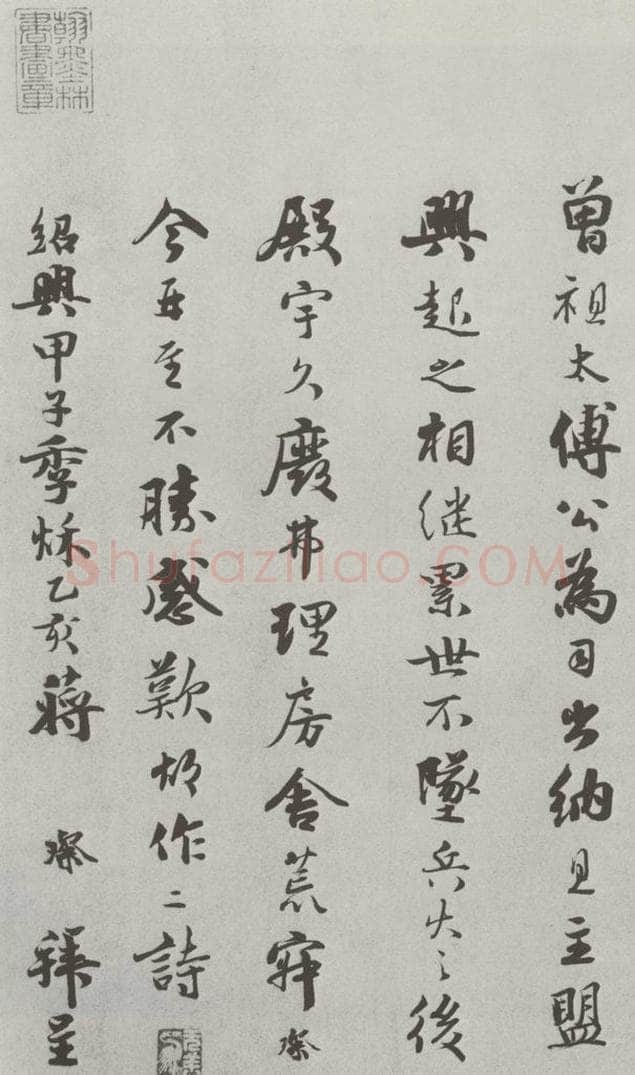 曾祖太傅公為司出納且主盟
興起之相继累世不墜兵火之後
殿宇久廢弗理房舍荒寂璨
今再至不勝感歎作二詩
紹興甲子季秋乙亥蔣璨拜呈
翰墨林書畫章